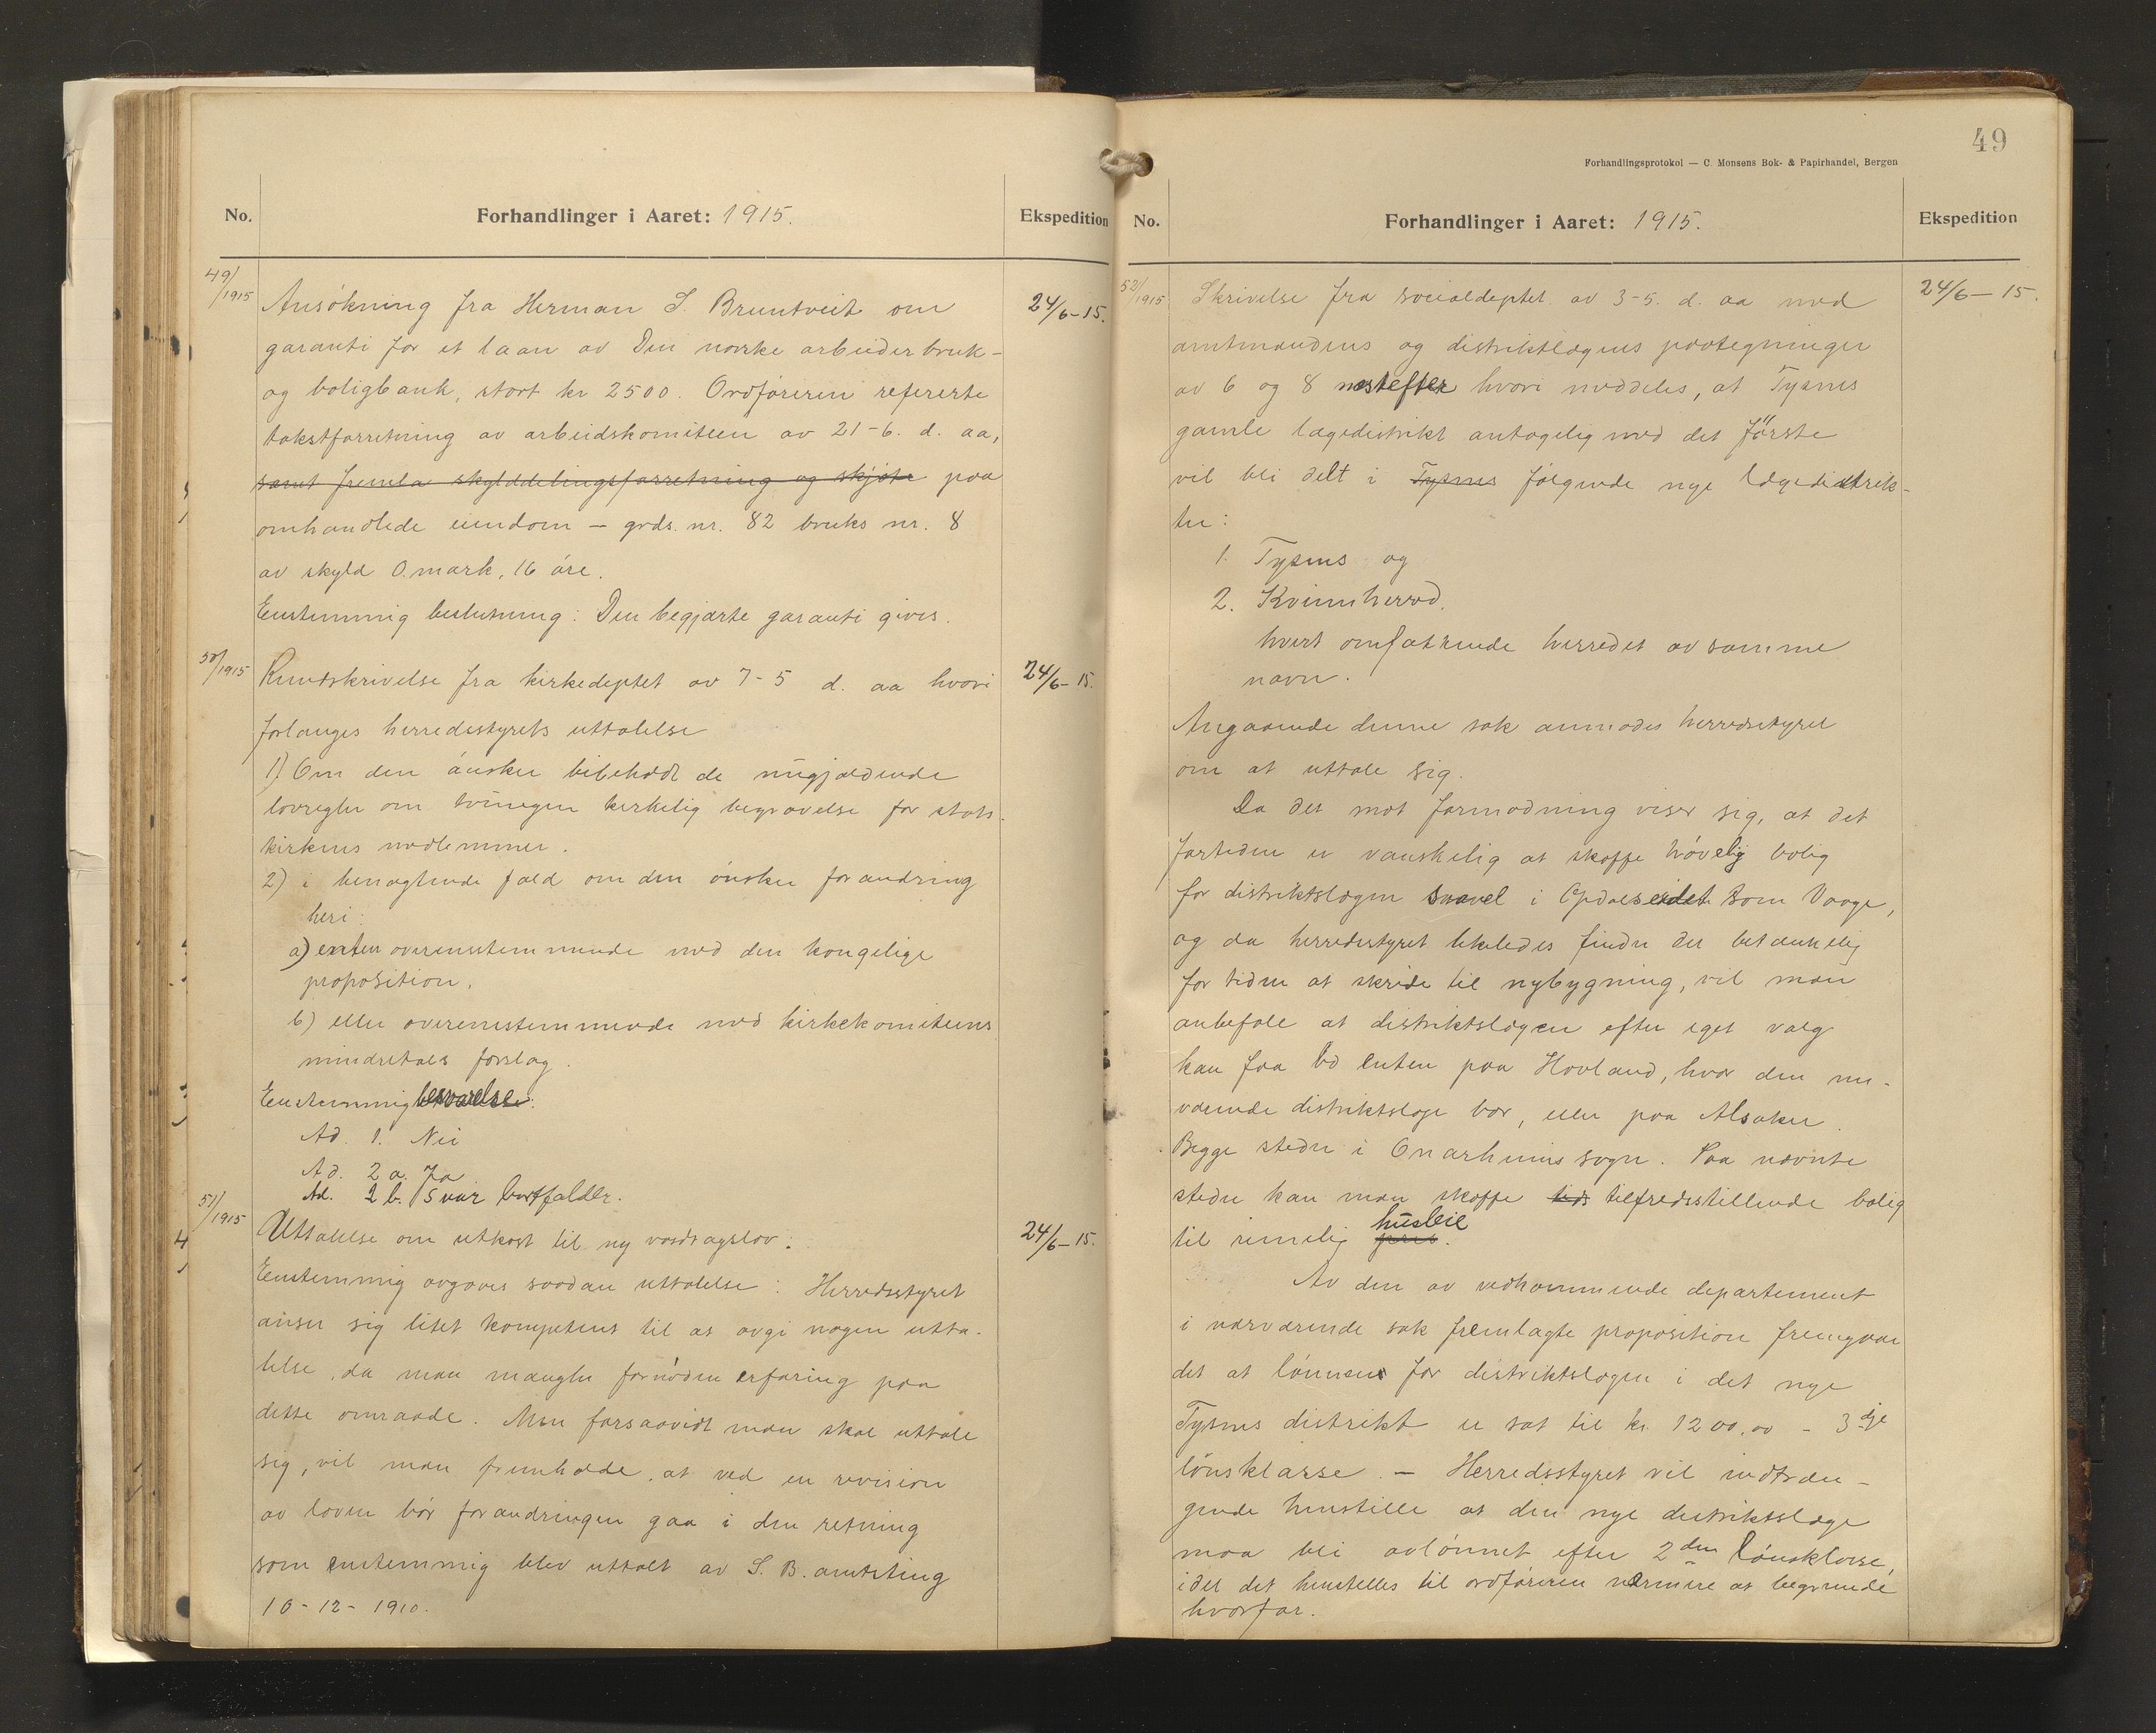 No.
Forhandlinger i Aaret: 1915.
Ekspedition
49/1915
Ansökning fra Herman S. Bruntveit om
24/6-15.
garanti for et laan av Den norske arbeiderbruk-
og boligbank, stort kr 2500. Ordföreren refererte
takstforretning av arbeidskomiteen av 21-6. d. aa,
samt fremla skylddelingsforretning og skjöte paa
omhandlede eiendom — grds. nr. 82 bruks nr. 8
av skyld 0 mark, 16 öre.
Enstemmig beslutning: Den begjærte garanti gives.
50/1915
Rundskrivelse fra kirkedeptet av 7-5 d. aa hvori
24/6-15.
forlanges herredsstyrets uttalelse
1) Om den önsker bibeholdt de nugjældende
lovregler om tvungen kirkelig begravelse for stats-
kirkens medlemmer.
2) i benægtende fald om den önsker forandring
heri:
a) enten overensstemmende med den kongelige
proposition.
b) eller overensstemmende med kirkekomiteens
mindretals forslag.
Enstemmig besvarelse:
Ad. 1. Nei
Ad. 2 a. Ja
Ad. 2 b. Svar bortfalder.
51/1915
Uttalelse om utkast til ny vasdragslov.
24/6-15.
Enstemmig avgaves saadan uttalelse: Herredsstyret
anser sig litet kompetent til at avgi nogen utta-
lelse, da man mangler fornöden erfaring paa
dette omraade. Men forsaavidt man skal uttale
sig, vil man fremholde, at ved en revision
av loven bör forandringen gaa i den retning
som enstemmig blev uttalt av S. B. amtsting
10-12-1910.
49
Forhandlingsprotokol — C. Monsens Bok- & Papirhandel, Bergen
No.
Forhandlinger i Aaret: 1915.
Ekspedition
52/1915
Skrivelse fra socialdeptet av 3-5. d. aa med
24/6-15.
amtmandens og distriktslægens paategninger
av 6 og 8 nestefter hvori meddeles, at Tysnes
gamle lægedistrikt antagelig med det förste
vil bli delt i Tysnes fölgende nye lægedistrik-
ter:
1. Tysnes og
2. Kvinnherred.
hvert omfattende herredet av samme
navn.
Angaaende denne sak anmodes herredsstyret
om at uttale sig.
Da det mot formodning viser sig, at det
fortiden er vanskelig at skaffe hövelig bolig
for distriktslægen saavel i Opdalseidet som Vaage,
og da herredsstyret likeledes finder det betænkelig
for tiden at skride til nybygning, vil man
anbefale at distriktslægen efter eget valg
kan faa bo enten paa Hovland, hvor den nu-
værende distriktslæge bor, eller paa Alsaker.
Begge steder i Onarheims sogn. Paa nævnte
steder kan man skaffe tids tilfredsstillende bolig
til rimelig pris husleie.
Av den av vedkommende departement
i nærværende sak fremlagte proposition fremgaar
det at lönnen for distriktslægen i det nye
Tysnes distrikt er sat til kr. 1200,00 - 3dje
lönsklasse. — Herredsstyret vil indtræn-
gende henstille at den nye distriktslæge
maa bli avlönnet efter 2den lönsklasse,
idet det henstilles til ordföreren nærmere at begrunde
hvorfor.